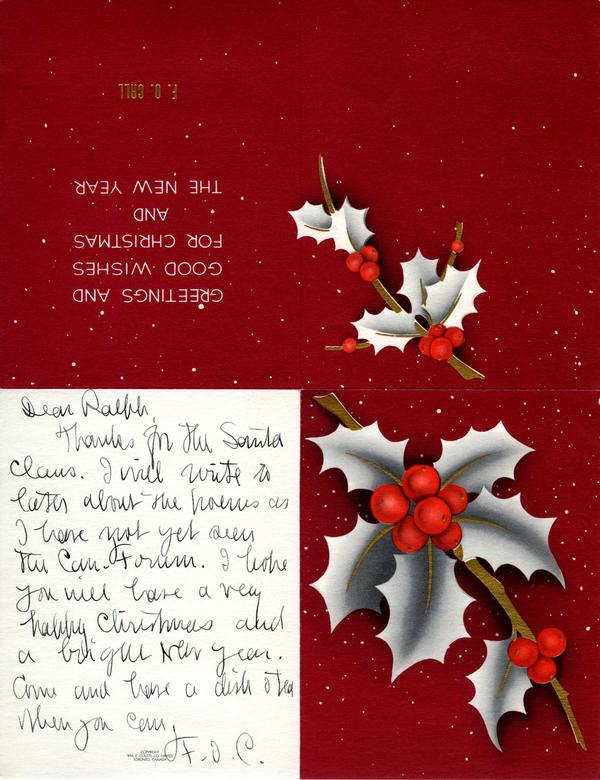 GREETINGS AND
GOOD WISHES
FOR CHRISTMAS
AND
THE NEW YEAR
F. O. CALL
Dear Ralph,
Thanks for the Santa
Claus. I will write to
later about the poems as
I have not yet seen
the Can. Forum. I hope
you will have a very
happy Christmas and
a bright New Year.
Come and have a dish o' tea
when you can,
F. O. C.
COPYRIGHT
WM. E. COUTTS CO. LIMITED
TORONTO, CANADA